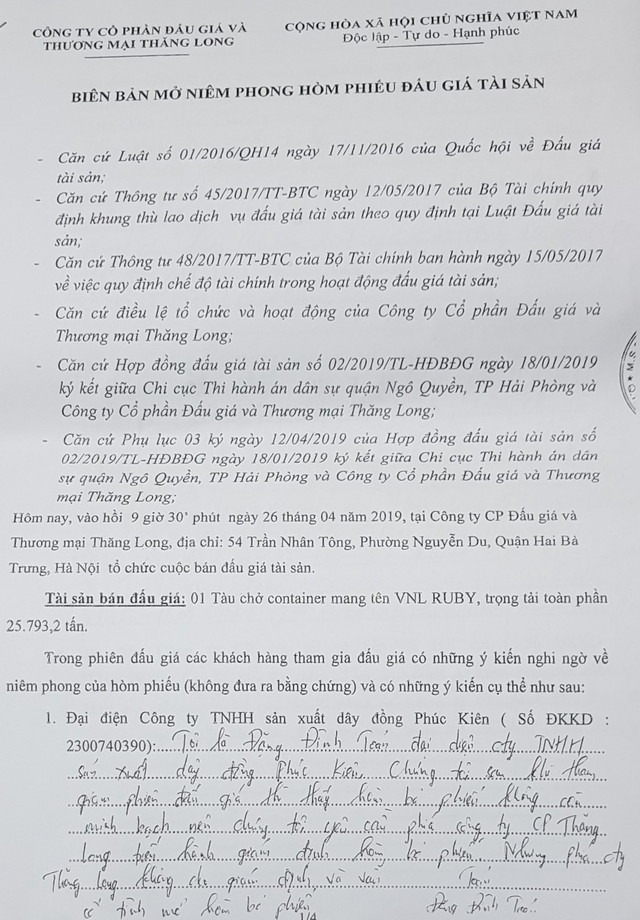 CÔNG TY CỔ PHẦN ĐẤU GIÁ VÀ
THƯƠNG MẠI THĂNG LONG
CỘNG HÒA XÃ HỘI CHỦ NGHĨA VIỆT NAM
Độc lập - Tự do - Hạnh phúc
BIÊN BẢN MỞ NIÊM PHONG HÒM PHIẾU ĐẤU GIÁ TÀI SẢN
- Căn cứ Luật số 01/2016/QH14 ngày 17/11/2016 của Quốc hội về Đấu giá
tài sản;
- Căn cứ Thông tư số 45/2017/TT-BTC ngày 12/05/2017 của Bộ Tài chính quy
định khung thù lao dịch vụ đấu giá tài sản theo quy định tại Luật Đấu giá tài
sản;
- Căn cứ Thông tư 48/2017/TT-BTC của Bộ Tài chính ban hành ngày 15/05/2017
về việc quy định chế độ tài chính trong hoạt động đấu giá tài sản;
- Căn cứ điều lệ tổ chức và hoạt động của Công ty Cổ phần Đấu giá và
Thương mại Thăng Long;
- Căn cứ Hợp đồng đấu giá tài sản số 02/2019/TL-HĐBĐG ngày 18/01/2019
ký kết giữa Chi cục Thi hành án dân sự quận Ngô Quyền, TP Hải Phòng và
Công ty Cổ phần Đấu giá và Thương mại Thăng Long;
- Căn cứ Phụ lục 03 ký ngày 12/04/2019 của Hợp đồng đấu giá tài sản số
02/2019/TL-HĐBĐG ngày 18/01/2019 ký kết giữa Chi cục Thi hành án dân
sự quận Ngô Quyền, TP Hải Phòng và Công ty Cổ phần Đấu giá và Thương
mại Thăng Long;
Hôm nay, vào hồi 9 giờ 30' phút ngày 26 tháng 04 năm 2019, tại Công ty CP Đấu giá và
Thương mại Thăng Long, địa chỉ: 54 Trần Nhân Tông, Phường Nguyễn Du, Quận Hai Bà
Trưng, Hà Nội tổ chức cuộc bán đấu giá tài sản.
Tài sản bán đấu giá: 01 Tàu chở container mang tên VNL RUBY, trọng tải toàn phần
25.793,2 tấn.
Trong phiên đấu giá các khách hàng tham gia đấu giá có những ý kiến nghi ngờ về
niêm phong của hòm phiếu (không đưa ra bằng chứng) và có những ý kiến cụ thể như sau:
1. Đại diện Công ty TNHH sản xuất dây đồng Phúc Kiên ( Số ĐKKD :
2300740390): Tôi là Đặng Đình Toán đại diện cty TNHH
sản xuất dây đồng Phúc Kiên. Chúng tôi sau khi tham
gia phiên đấu giá thì thấy hòm bỏ phiếu không còn
minh bạch nên chúng tôi yêu cầu phía công ty CP Thăng
Long tiến hành giám định hòm bỏ phiếu. Nhưng phía cty
Thăng Long không cho giám định và vẫn
cố tình mở hòm bỏ phiếu
Toán
Đặng Đình Toán
1/4